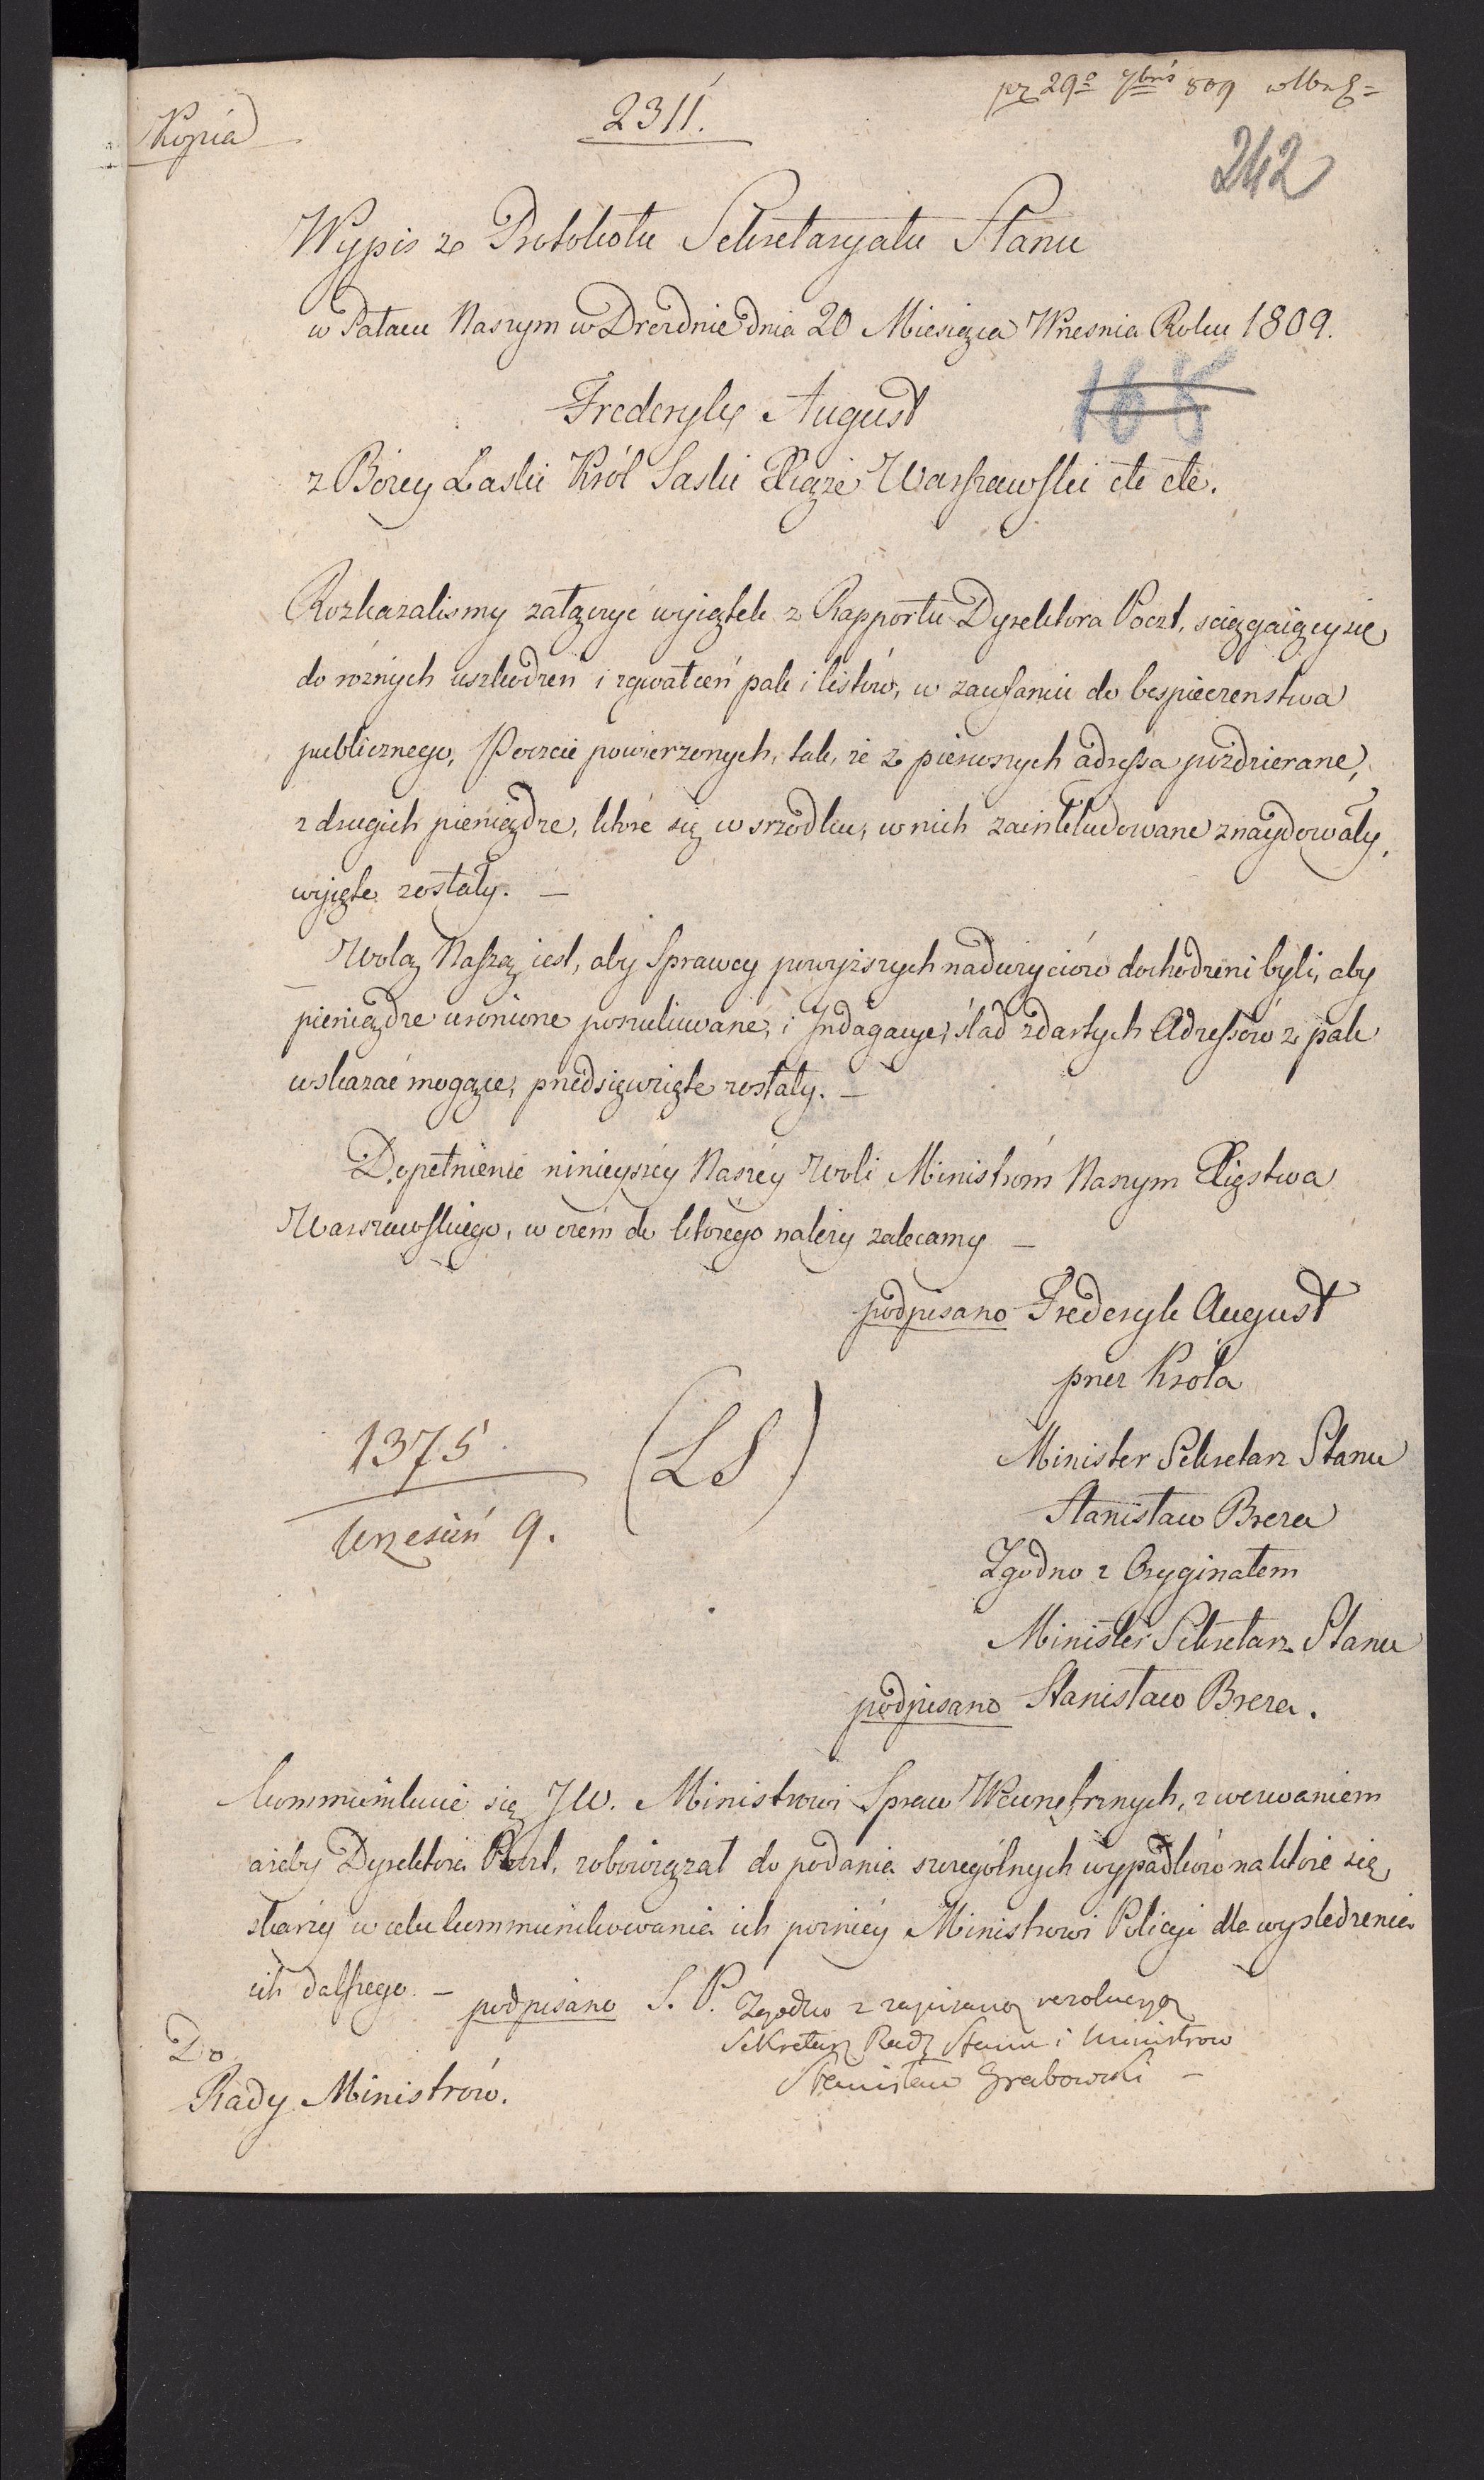 Kopia
2311.
pr 29º 7bris 809
242
Wypis z Protokołu Sekretaryatu Stanu
w Pałacu Naszym w Dreźdnie dnia 20 Miesiąca Wrzesnia Roku 1809.
165
Frederyk August
z Bożey Łaski Król Saski Xiąże Warszawski etc etc.
Rozkazalismy załączyć wyiątek z Rapportu Dyrektora Poczt, sciągaiący się
do róźnych uszkodzeń i zgwałceń pak i listów, w zaufaniu do bespieczenstwa
publicznego, Poczcie powierzonych, tak, że z pierwszych adressa pozdzierane,
z drugich pieniądze, które się w srzodku, w nich zainkludowane znaydowały,
wyięte zostały. —
Wolą Naszą iest, aby Sprawcy powyższych nadużyciów dochodzeni byli, aby
pieniądze uronione poszukiwane, i Indagacye, ślad zdartych Adressów z pak
wskazać mogące, przedsięwzięte zostały. —
Dopełnienie ninieyszéy Naszéy Woli Ministróm Naszym Xięstwa
Warszawskiego, w czém do którego należy zalecamy —
podpisano Frederyk August
przez Króla
Minister Sekretarz Stanu
1375
(LS)
Stanisław Breza
Wrzesień 9.
Zgodno z Oryginałem
Minister Sekretarz Stanu
podpisano Stanisław Breza.
kommunikuie się JW. Ministrowi Spraw Wewnętrznych, z wezwaniem
ażeby Dyrektora Poczt, zobowiązał do podania szczególnych wypadków na które się
skarży w celu kommunikowania ich pozniéy Ministrowi Policyi dla wysledzenia
ich dalszego. — podpisano S. P. Zgodno z zapisaną rezolucyą
Sekretarz Rady Stanu i Ministrow
Do
Stanisław Grabowski —
Rady Ministrów.